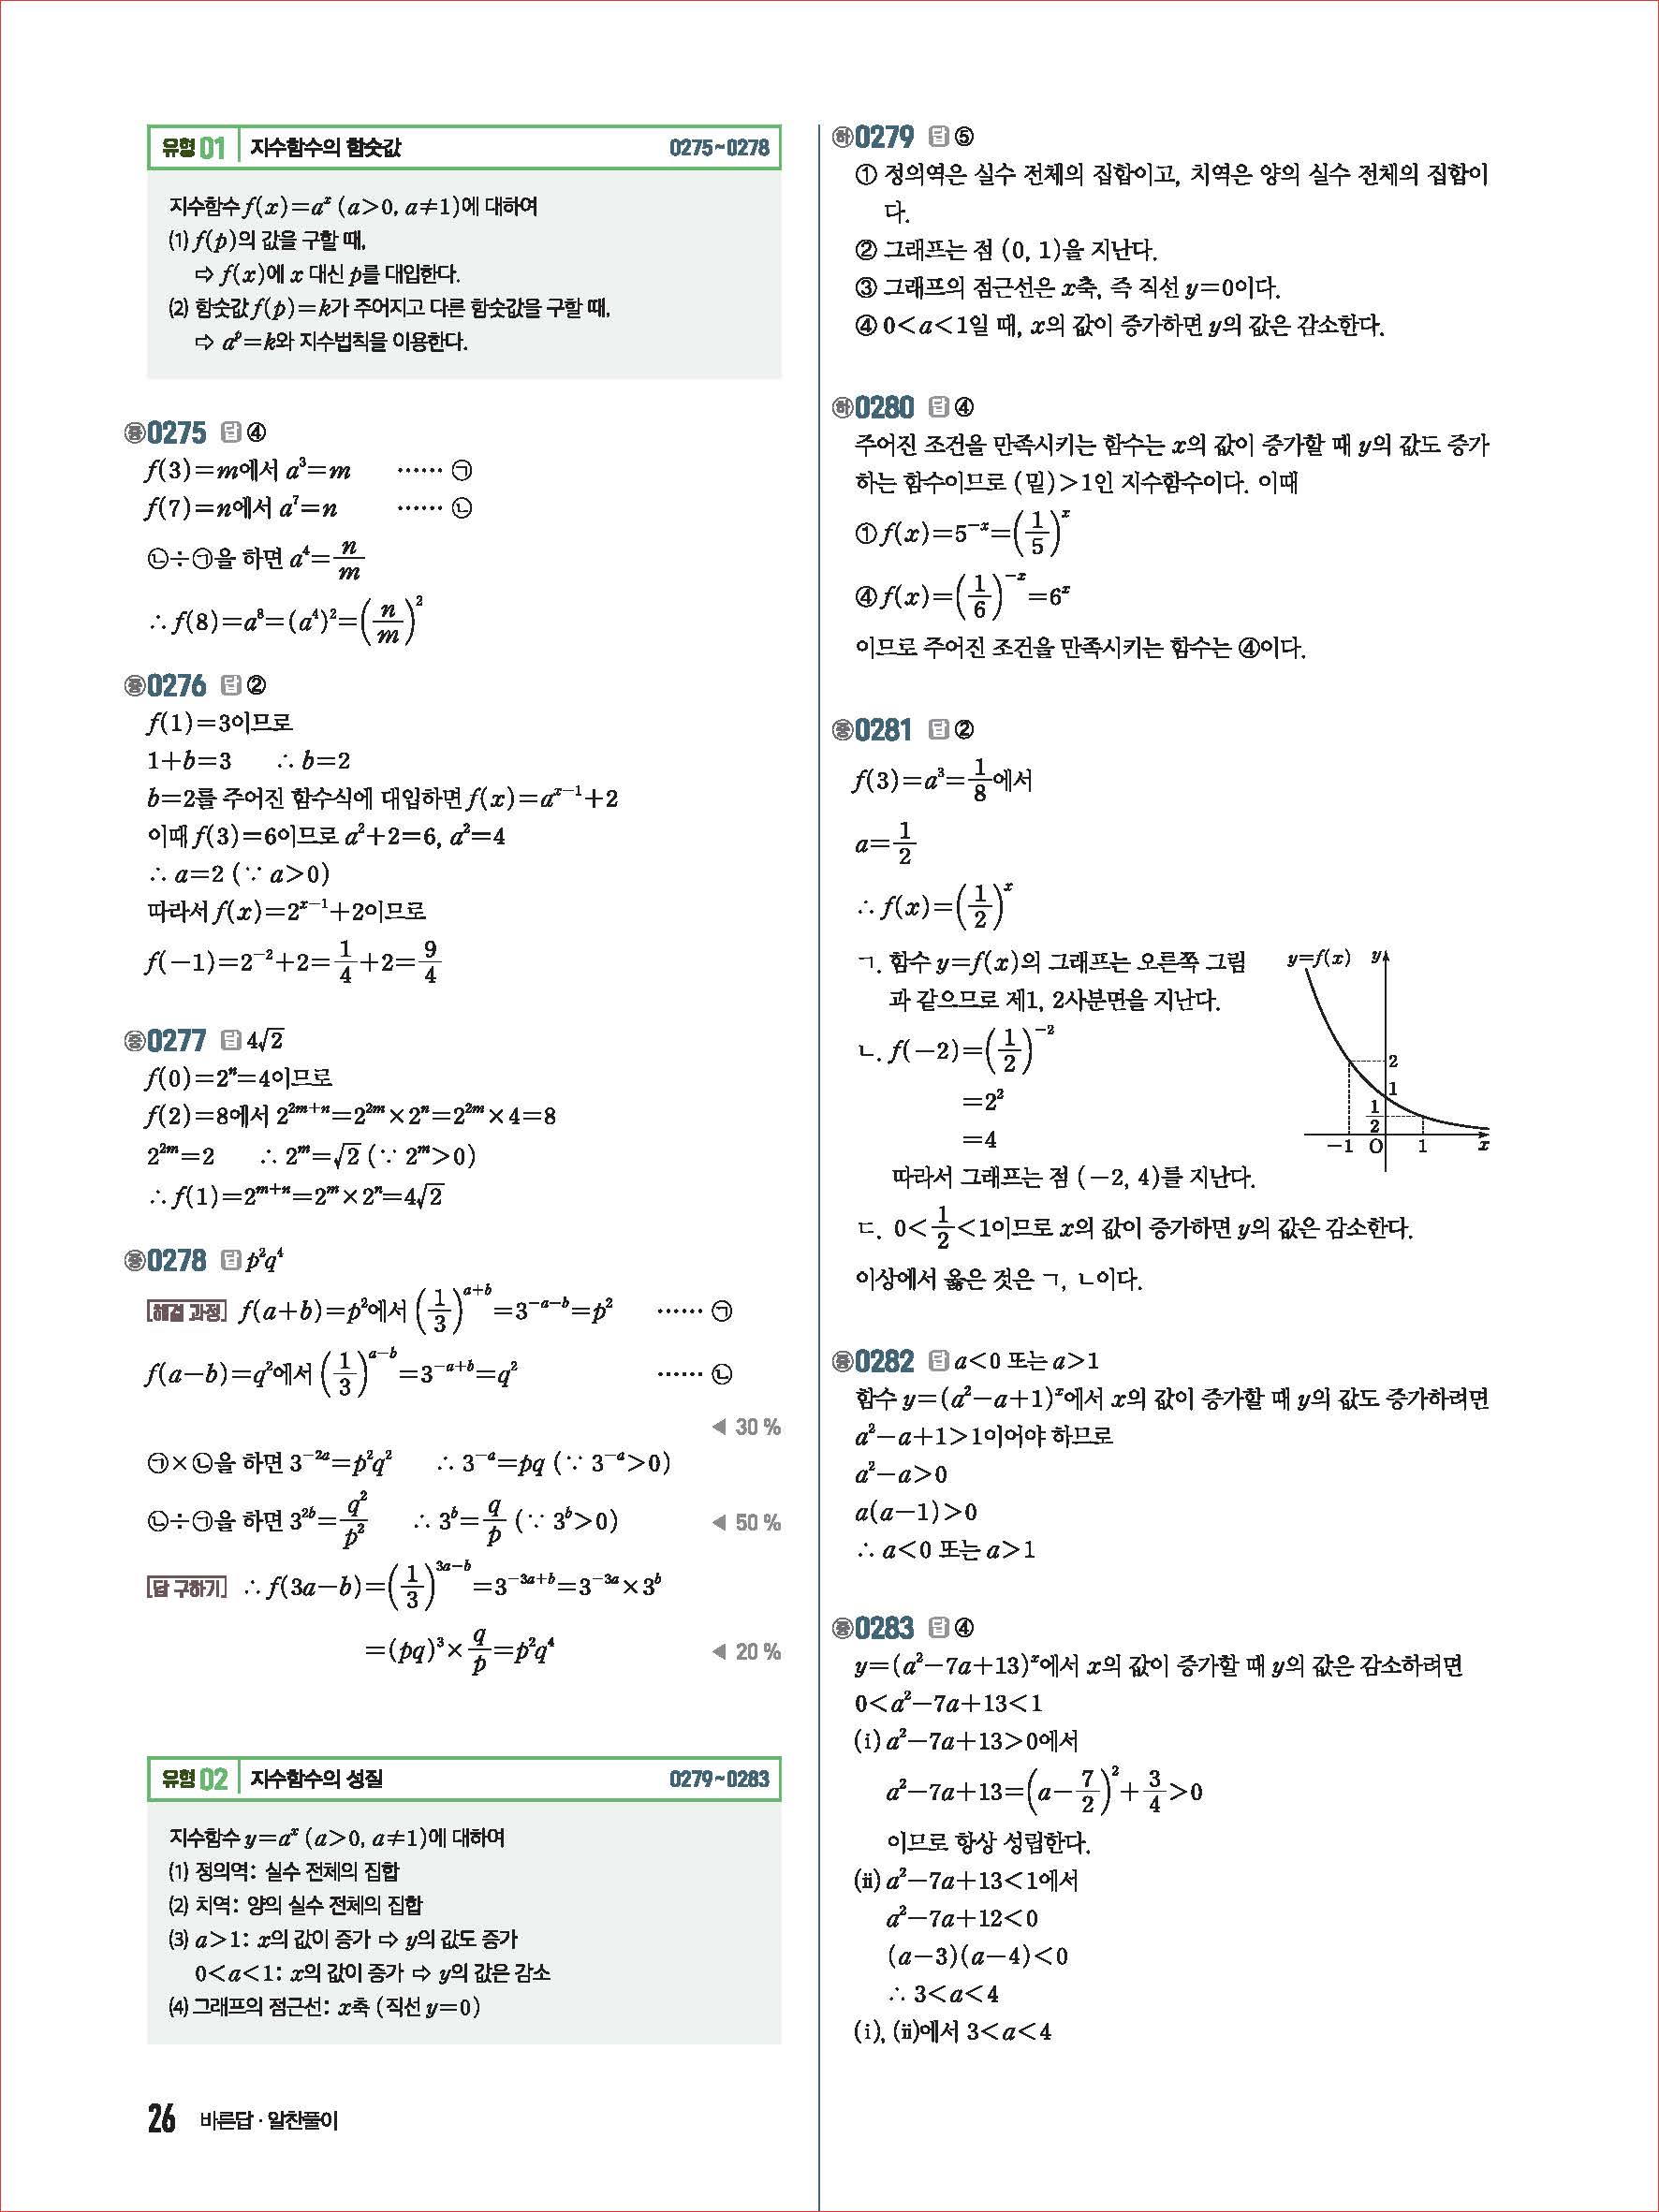 유형 01 지수함수의 함숫값 0275~0278
지수함수 f(x)=aˣ (a>0, a≠1)에 대하여
⑴ f(p)의 값을 구할 때,
⇨ f(x)에 x 대신 p를 대입한다.
⑵ 함숫값 f(p)=k가 주어지고 다른 함숫값을 구할 때,
⇨ aᵖ=k와 지수법칙을 이용한다.
중 0275 답 ④
f(3)=m에서 a³=m …… ㉠
f(7)=n에서 a⁷=n …… ㉡
㉡÷㉠을 하면 a⁴=n/m
∴ f(8)=a⁸=(a⁴)²=(n/m)²
중 0276 답 ②
f(1)=3이므로
1+b=3 ∴ b=2
b=2를 주어진 함수식에 대입하면 f(x)=aˣ⁻¹+2
이때 f(3)=6이므로 a²+2=6, a²=4
∴ a=2 (∵ a>0)
따라서 f(x)=2ˣ⁻¹+2이므로
f(-1)=2⁻²+2=1/4+2=9/4
중 0277 답 4√2
f(0)=2ⁿ=4이므로
f(2)=8에서 2²ᵐ⁺ⁿ=2²ᵐ×2ⁿ=2²ᵐ×4=8
2²ᵐ=2 ∴ 2ᵐ=√2 (∵ 2ᵐ>0)
∴ f(1)=2ᵐ⁺ⁿ=2ᵐ×2ⁿ=4√2
중 0278 답 p²q⁴
해결 과정 f(a+b)=p²에서 (1/3)ᵃ⁺ᵇ=3⁻ᵃ⁻ᵇ=p² …… ㉠
f(a-b)=q²에서 (1/3)ᵃ⁻ᵇ=3⁻ᵃ⁺ᵇ=q² …… ㉡
◀ 30 %
㉠×㉡을 하면 3⁻²ᵃ=p²q² ∴ 3⁻ᵃ=pq (∵ 3⁻ᵃ>0)
㉡÷㉠을 하면 3²ᵇ=q²/p² ∴ 3ᵇ=q/p (∵ 3ᵇ>0) ◀ 50 %
답 구하기 ∴ f(3a-b)=(1/3)³ᵃ⁻ᵇ=3⁻³ᵃ⁺ᵇ=3⁻³ᵃ×3ᵇ
=(pq)³×q/p=p²q⁴ ◀ 20 %
유형 02 지수함수의 성질 0279~0283
지수함수 y=aˣ (a>0, a≠1)에 대하여
⑴ 정의역: 실수 전체의 집합
⑵ 치역: 양의 실수 전체의 집합
⑶ a>1: x의 값이 증가 ⇨ y의 값도 증가
0<a<1: x의 값이 증가 ⇨ y의 값은 감소
⑷ 그래프의 점근선: x축 (직선 y=0)
26 바른답·알찬풀이
하 0279 답 ⑤
① 정의역은 실수 전체의 집합이고, 치역은 양의 실수 전체의 집합이
다.
② 그래프는 점 (0, 1)을 지난다.
③ 그래프의 점근선은 x축, 즉 직선 y=0이다.
④ 0<a<1일 때, x의 값이 증가하면 y의 값은 감소한다.
하 0280 답 ④
주어진 조건을 만족시키는 함수는 x의 값이 증가할 때 y의 값도 증가
하는 함수이므로 (밑)>1인 지수함수이다. 이때
① f(x)=5⁻ˣ=(1/5)ˣ
④ f(x)=(1/6)⁻ˣ=6ˣ
이므로 주어진 조건을 만족시키는 함수는 ④이다.
중 0281 답 ②
f(3)=a³=1/8에서
a=1/2
∴ f(x)=(1/2)ˣ
ㄱ. 함수 y=f(x)의 그래프는 오른쪽 그림
과 같으므로 제1, 2사분면을 지난다.
ㄴ. f(-2)=(1/2)⁻²
=2²
=4
따라서 그래프는 점 (-2, 4)를 지난다.
y=f(x) y
2
1
1/2
-1 O 1 x
ㄷ. 0<1/2<1이므로 x의 값이 증가하면 y의 값은 감소한다.
이상에서 옳은 것은 ㄱ, ㄴ이다.
중 0282 답 a<0 또는 a>1
함수 y=(a²-a+1)ˣ에서 x의 값이 증가할 때 y의 값도 증가하려면
a²-a+1>1이어야 하므로
a²-a>0
a(a-1)>0
∴ a<0 또는 a>1
중 0283 답 ④
y=(a²-7a+13)ˣ에서 x의 값이 증가할 때 y의 값은 감소하려면
0<a²-7a+13<1
(ⅰ) a²-7a+13>0에서
a²-7a+13=(a-7/2)²+3/4>0
이므로 항상 성립한다.
(ⅱ) a²-7a+13<1에서
a²-7a+12<0
(a-3)(a-4)<0
∴ 3<a<4
(ⅰ), (ⅱ)에서 3<a<4